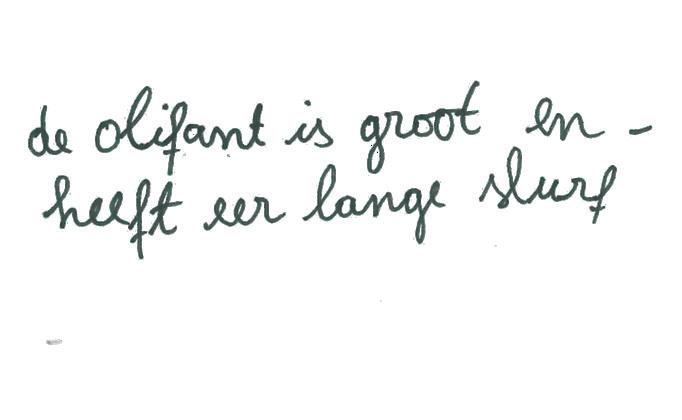 de olifant is groot en -
heeft eer lange slurf